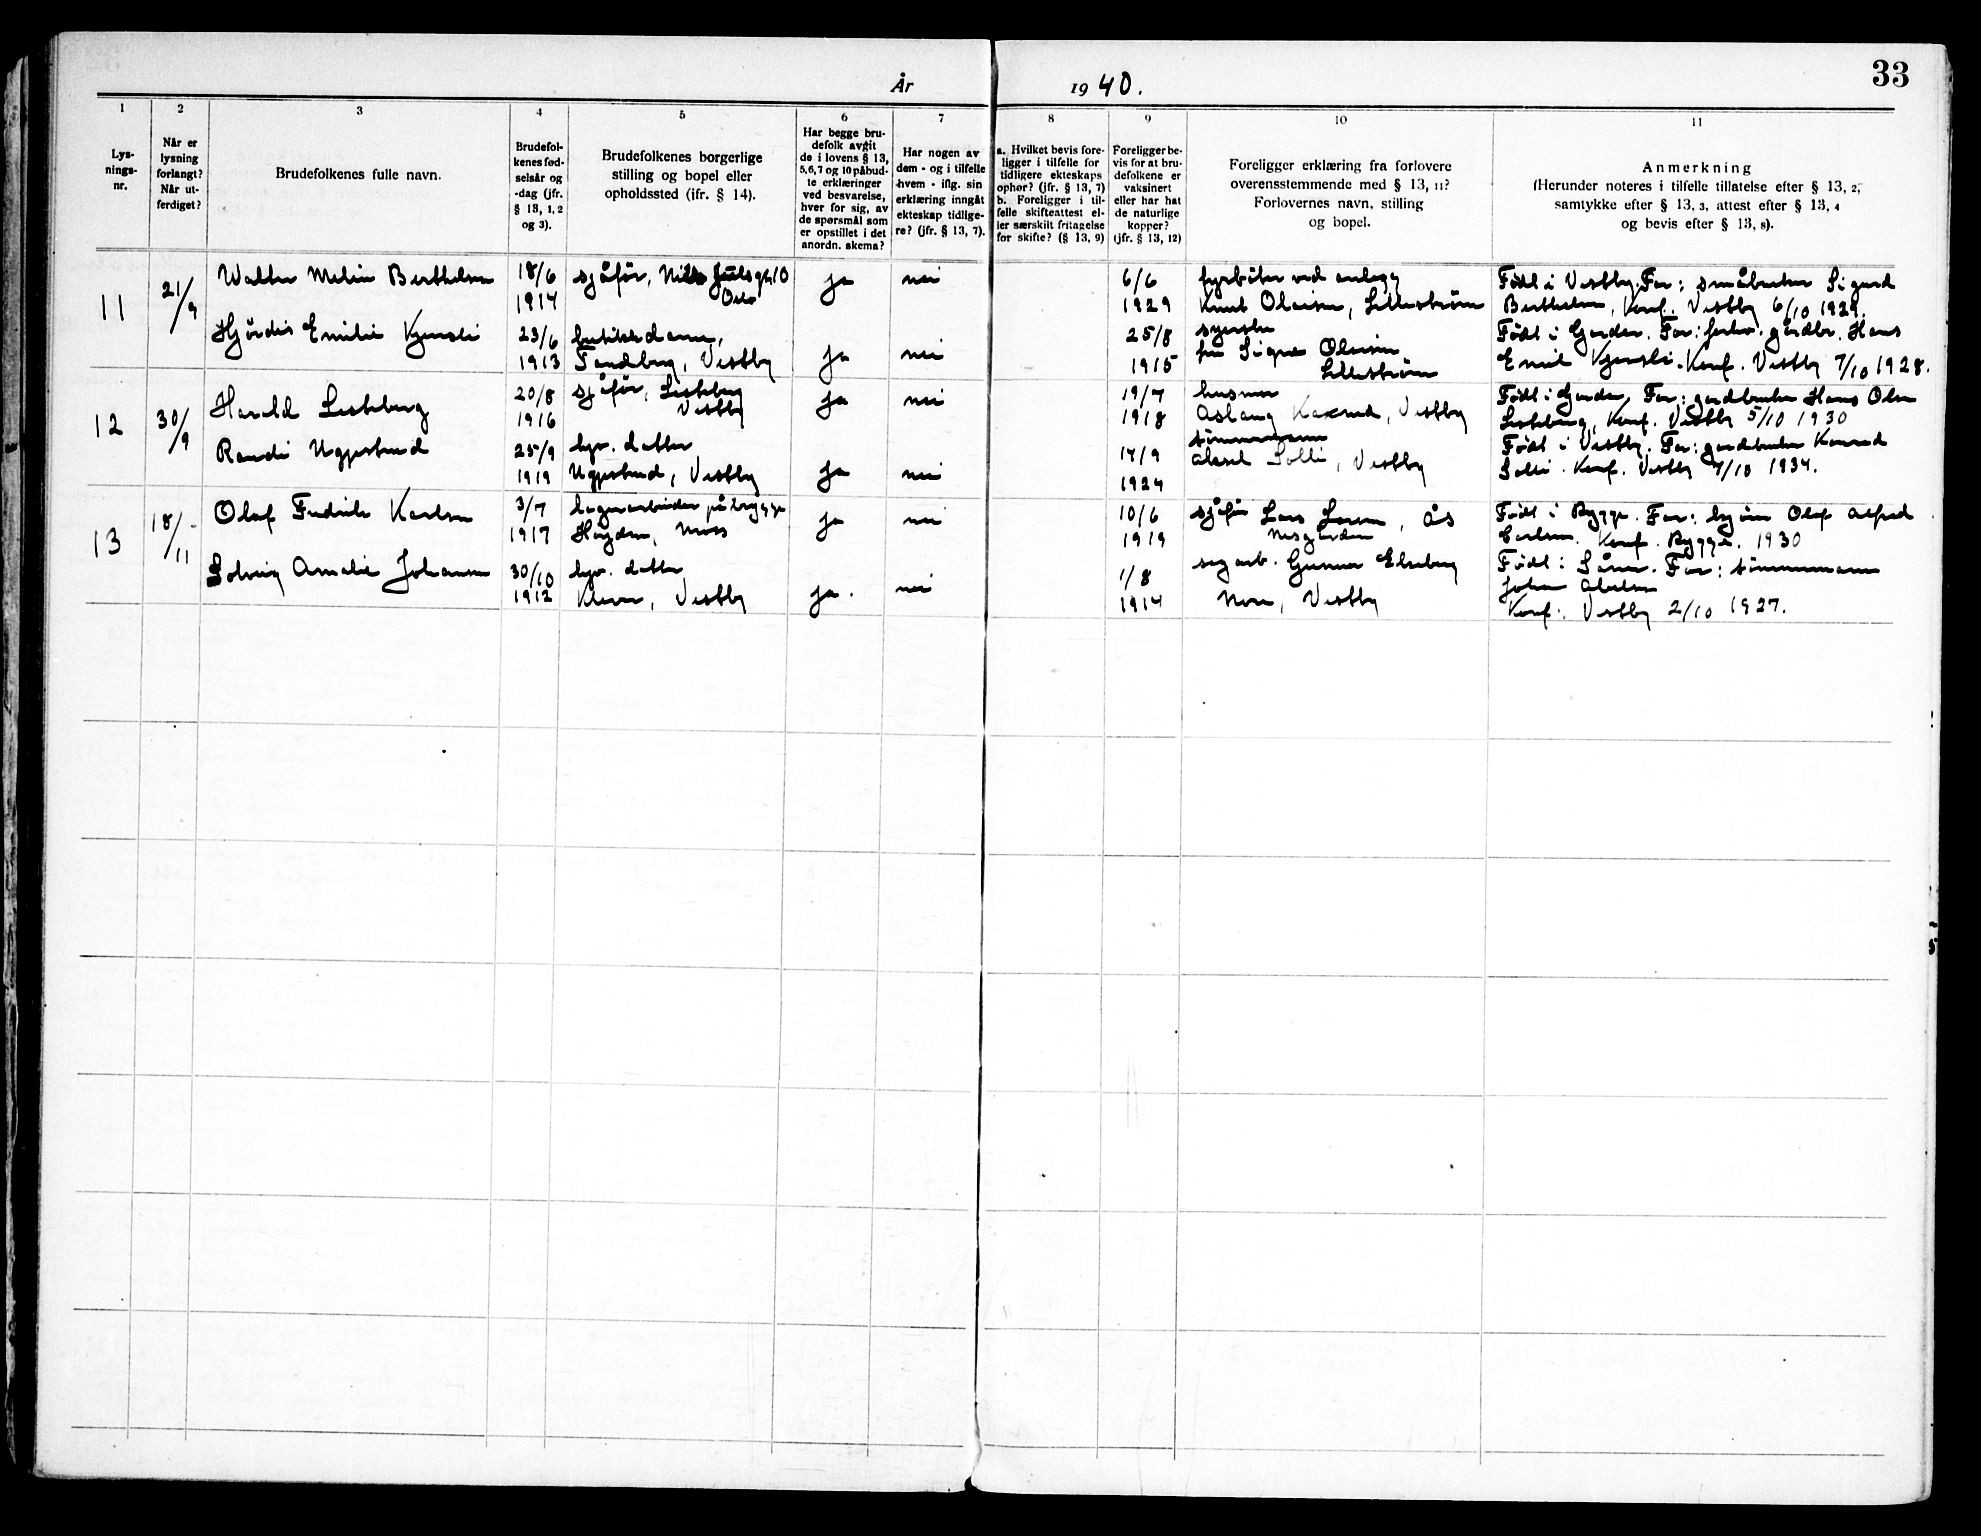 33
År 1940.
1 2 3 4 5 6 7 8 9 10 11
Lys-
nings-
nr.
Når er
lysning
forlangt?
Når ut-
ferdiget?
Brudefolkenes fulle navn.
Brudefol-
kenes fød-
selsår og
-dag (jfr.
§ 13, 1, 2
og 3).
Brudefolkenes borgerlige
stilling og bopel eller
opholdssted (ifr. § 14).
Har begge bru-
defolk avgit
de i lovens § 13,
5,6,7 og 10 påbud-
te erklæringer
ved besvarelse,
hver for sig, av
de spørsmål som
er opstillet i det
anordn. skema?
Har nogen av
dem - og i tilfelle
hvem - iflg. sin
erklæring inngåt
ekteskap tidlige-
re? (jfr. § 13, 7).
a. Hvilket bevis fore-
ligger i tilfelle for
tidligere ekteskaps
ophør? (jfr. § 13, 7)
b. Foreligger i til-
felle skifteattest el-
ler særskilt fritagelse
for skifte? (§ 13, 9)
Foreligger be-
vis for at bru-
defolkene er
vaksinert
eller har hat
de naturlige
kopper?
(jfr. § 13, 12)
Foreligger erklæring fra forlovere
overensstemmende med § 13, 11?
Forlovernes navn, stilling
og bopel.
Anmerkning
(Herunder noteres i tilfelle tillatelse efter § 13, 2,
samtykke efter § 13, 3, attest efter § 13, 4
og bevis efter § 13, 8).
11
21/9
Walter Melin Berthelsen
18/6
1914
sjåfør, Nils Juels gt. 10
Oslo
ja
nei
6/6
1929
fyrbøter ved anlegg
Knut Olaisen, Lillestrøm
Født i Vestby. Far: småbruker Sigurd
Berthelsen, Konf. Vestby 6/10 1929.
Hjørdis Emilie Kjensli
23/6
1913
butikkdame,
Vestby
ja
nei
25/8
1915
fru Signe Olaisen
Lillestrøm
Født i Garder. Far: forhv. gårdbr. Hans
Emil Kjensli. Konf. Vestby 7/10 1928.
12
30/9
Harald Liskeberg
20/8
1916
sjåfør, Liskeberg
Vestby
ja
nei
19/7
1918
husmor
Aslaug Vestby
Født i Garder, Far: gardbruker Hans Olsen
Liskeberg, Konf. Vestby 5/10 1930
Randi Uggersrud
25/9
1919
hjv. datter
Uggersrud, Vestby
ja
nei
17/9
1924
tømmermann
Aksel Solli, Vestby
Født i Vestby. Far: gardbruker Konrad
Solli. Konf. Vestby 7/10 1934.
13
18/11
Olaf Fredrik Karlsen
3/7
1917
lagerarbeider på brygge
Høyden, Moss
ja
nei
10/6
1919
sjåfør Lars Larsen, Ås
Nesgarden
Født i Rygge. Far: Olaf Alfred
Carlsen. Konf. Rygge. 1930
Solveig Amalie Johansen
30/10
1912
hjv. datter,
Kleven, Vestby
ja.
nei
1/8
1914
sagarb. Gunnar Elseberg
Vestby
Født i Såner. Far: tømmermann
Johan
Konf: Vestby 2/10 1927.